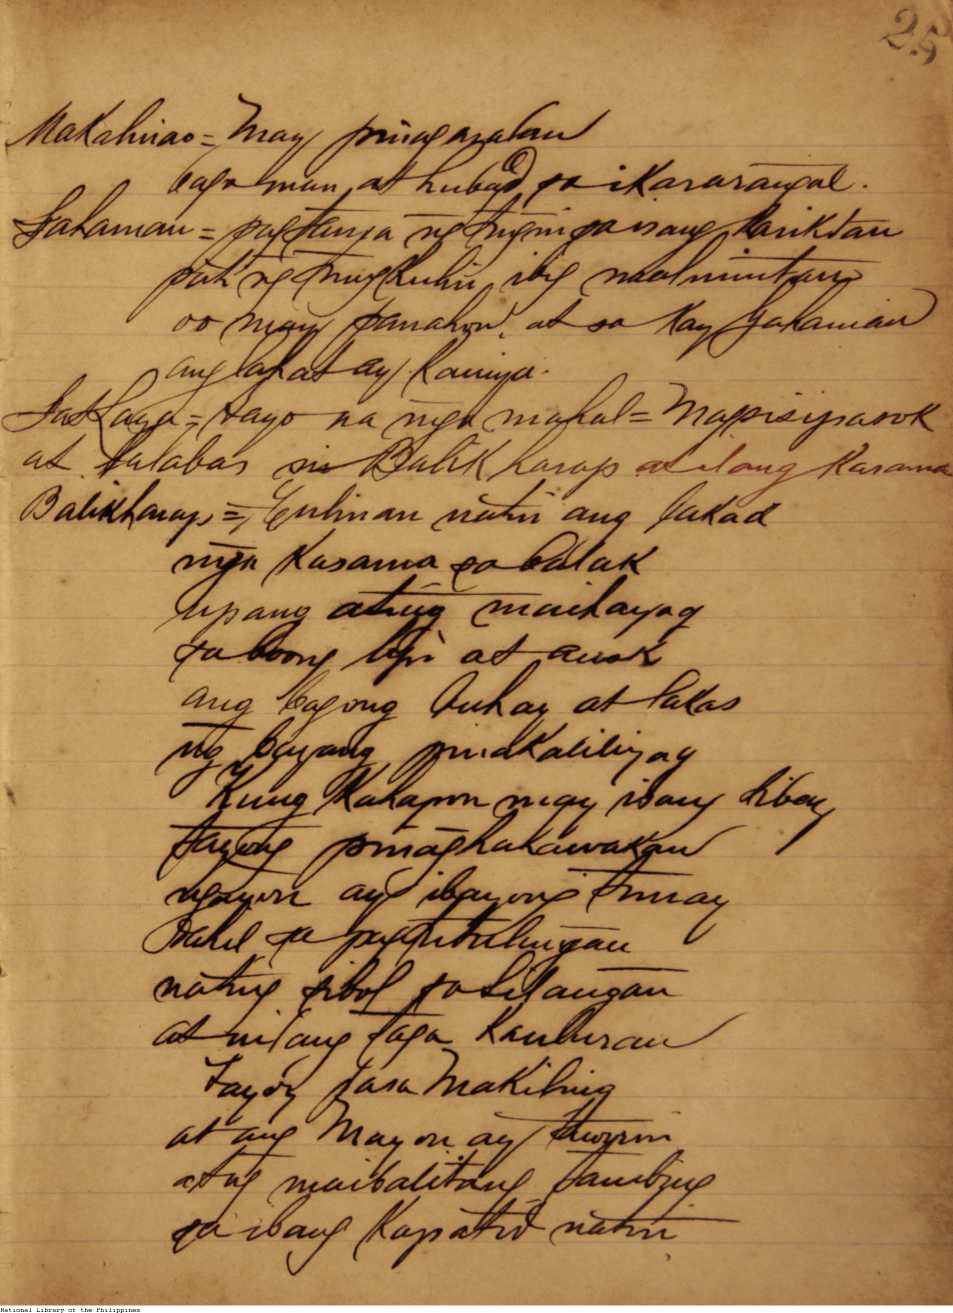 25
Makahirao = May pinagaralan
bago man at hubad sa ikararangal.
Jahaman = pagtanga ng tingin sa isang kariktan
ibig
oo may panahon, at sa kay Jahaman
ang lahat ay kaniya.
= tayo na nga mahal = Magsisipasok
at lalabas si Balikharap at ilang kasama
Balikharap = Tulinan natin ang lakad
mga kasama sa balak
upang ating maihayag
sa boong lipi at anak
ang bagong buhay at lakas
ng bayang pinakaliliyag
Kung kahapon may isang libay
tayong pinaghahawakan
ngayon ay ibayong tunay
Dahil sa pagtutulungan
nating sibol sa Silangan
at nilang taga Kanluran
Tayo'y sasa Makiling
at ang Mayon ay tuwirin
at ng maibalitang tambing
sa ibang kapatid natin
National Library of the Philippines